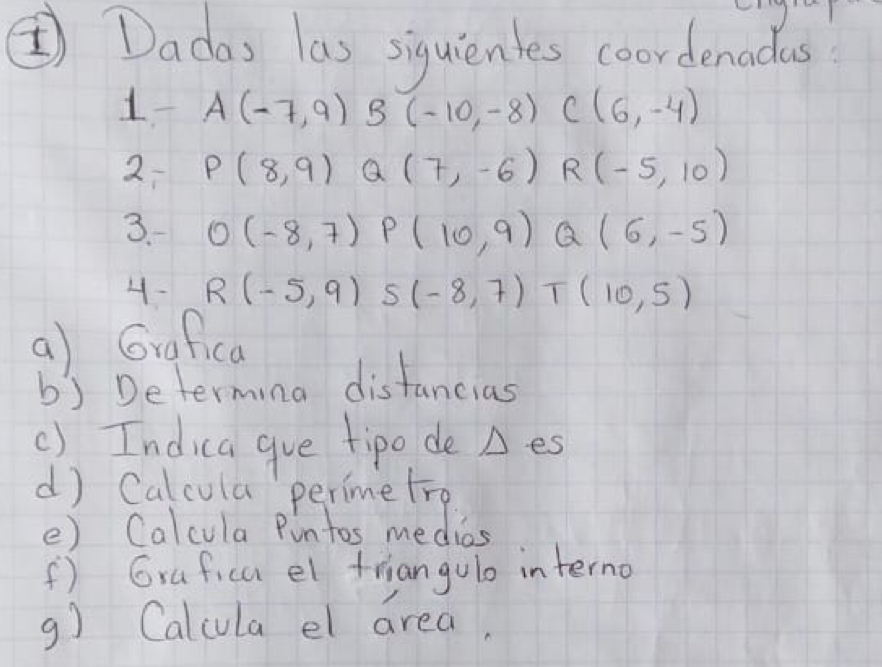 I) Dadas las siguientes coordenadas:
1.- A(-7,9) B(-10,-8) C(6,-4)
2.- P(8,9) Q(7,-6) R(-5,10)
3.- O(-8,7) P(10,9) Q(6,-5)
4.- R(-5,9) S(-8,7) T(10,5)
a) Grafica
b) Determina distancias
c) Indica que tipo de Δ es
d) Calcula perímetro
e) Calcula Puntos medios
f) Grafica el triangulo interno
g) Calcula el área.